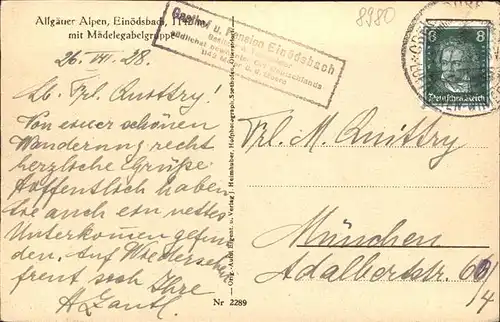 Allgäuer Alpen, Einödsbach, 1142 m
mit Mädelegabelgruppe
8980
Gasthof u. Pension Einödsbach
südlichst bewohnter Ort Deutschlands
1142 Meter ü. d. Meere
8 8
Deutsches Reich
26. VII. 28.
Lb. Frl. Quittry!
Von einer schönen
Wanderung recht
herzliche Grüße.
Hoffentlich haben
Sie auch ein nettes
Unterkomen gefun
den. Auf Wiedersehen
freut sich Ihre
A. Zantl.
Orig.-Aufn. Eigent. u. Verlag J. Heimhuber, Hofphotograph, Sonthofen, Oberstdorf
Nr 2289
Frl. M. Quittry
München
Adalbertstr. 60/4